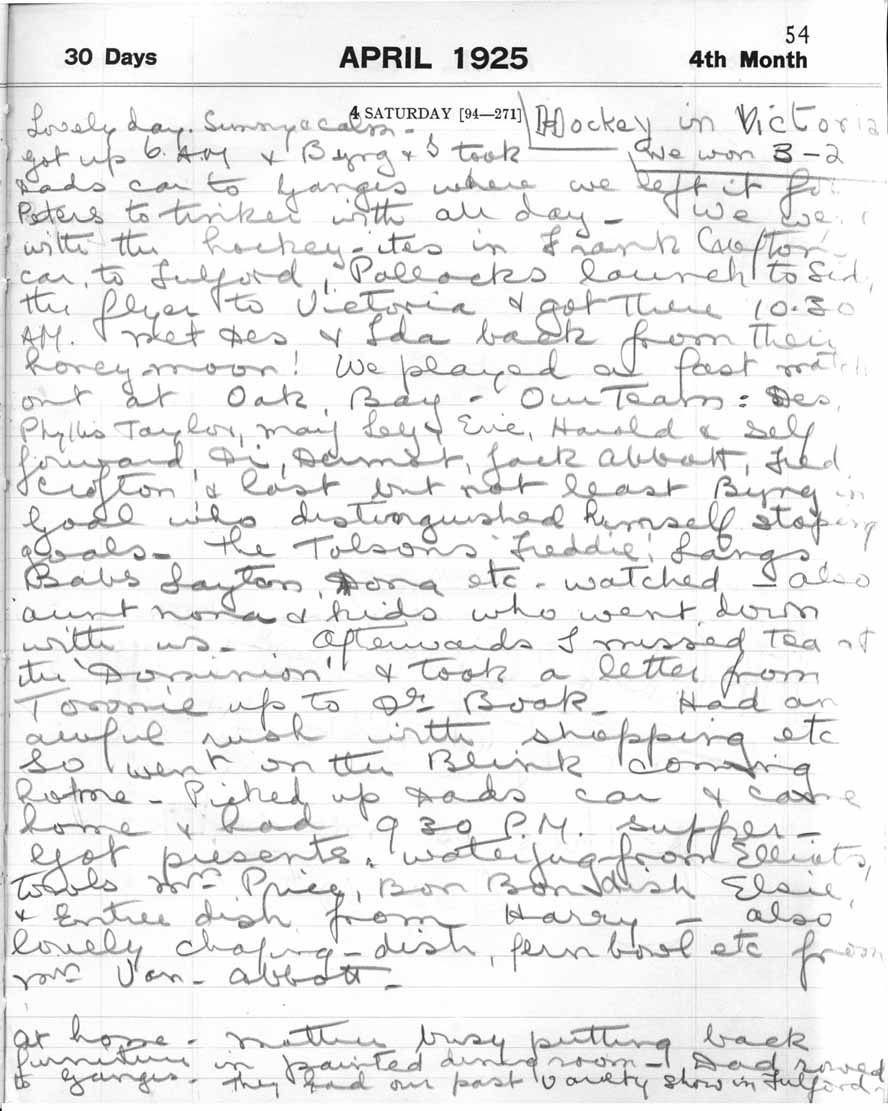 54
30 Days APRIL 1925 4th Month
4 SATURDAY [94—271] Hockey in Victoria
We won 3-2
Lovely day. Sunny & calm -
got up 6. AM & Byng & I took
Dads car to Ganges where we left it for
Peters to tinker with all day - We we
with the hockey-ites in Frank Crofton
car, to Fulford, Pollocks launch to Sid,
the flyer to Victoria & got there 10.30
AM. Met Des & Ida back from their
honeymoon! We played a fast match
out at Oak Bay - Our Team: Des,
Phyllis Taylor, may Ley & Evie, Harold & self
forward, Di, Dermot, Jack Abbott, Fred
Crofton & last but not least Byng in
goal who distinguished himself stoping
goals - The Tolsons 'Freddie', Langs
Babs Layton, Dona etc. watched - also
aunt nona & kids who went down
with us - Afterwards I missed tea at
the 'Dominion' & took a letter from
Tommie up to Dr. Boak - Had an
awful rush with shopping etc
So went on the Blink coming
home - Picked up Dads car & came
home & had 9 30 P.M. supper -
Got presents, waterjug from Elliots,
towls Mrs Price, Bon Bon dish Elsie,
& Entree dish from Harry - also
lovely chafing-dish, fern bowl etc from
Mrs Van - abbott -
at home - mother busy putting back
furniture in painted dining room - Dad rowed
to Ganges - They had our past Variety show in Fulford